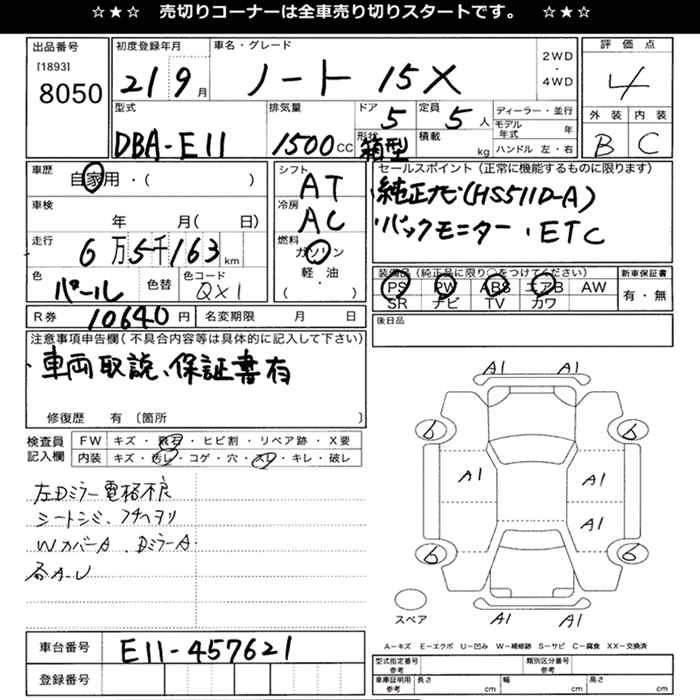 ☆★☆ 売切りコーナーは全車売り切りスタートです。 ☆★☆
出品番号
[1893]
8050
初度登録年月
21 9月
車名・グレード
ノート 15X
2WD
・
4WD
評価点
4
外装 内装
B C
型式
DBA-E11
排気量
1500cc
ドア
5
形状
箱型
定員
5人
積載
kg
ディーラー・並行
モデル年式 年
ハンドル 左・右
車歴
自家用・( )
車検
年 月( 日)
走行
6万5千163km
色
パール
色替
色コード
QX1
シフト
AT
冷房
AC
燃料
ガソリン
軽・油
( )
セールスポイント(正常に機能するものに限ります)
・純正ナビ(HS511D-A)
・バックモニター・ETC
装備品(純正品に限り○をつけてください)
PS PW ABS エアB AW
SR ナビ TV カワ
新車保証書
有・無
R券
10640円
名変期限 月 日
後日品
注意事項申告欄(不具合内容等は具体的に記入して下さい)
・車両取説、保証書有
修復歴 有〔箇所 〕
検査員
記入欄
FW キズ・飛石・ヒビ割・リペア跡・X要
内装 キズ・汚レ・コゲ・穴・スレ・キレ・破レ
左Dミラー電格不良
シートシミ、フチヘタリ
WカバーA、DミラーA
各A-U
A1 A1
6 6
A1 A1
A1
6 6
A1 A1
スペア
車台番号
E11-457621
登録番号
A-キズ E-エクボ U-凹み W-補修跡 S-サビ C-腐食 XX-交換済
型式指定番号
参考
類別区分番号
参考
車庫証明用
参考
長さ cm
幅 cm
高さ cm